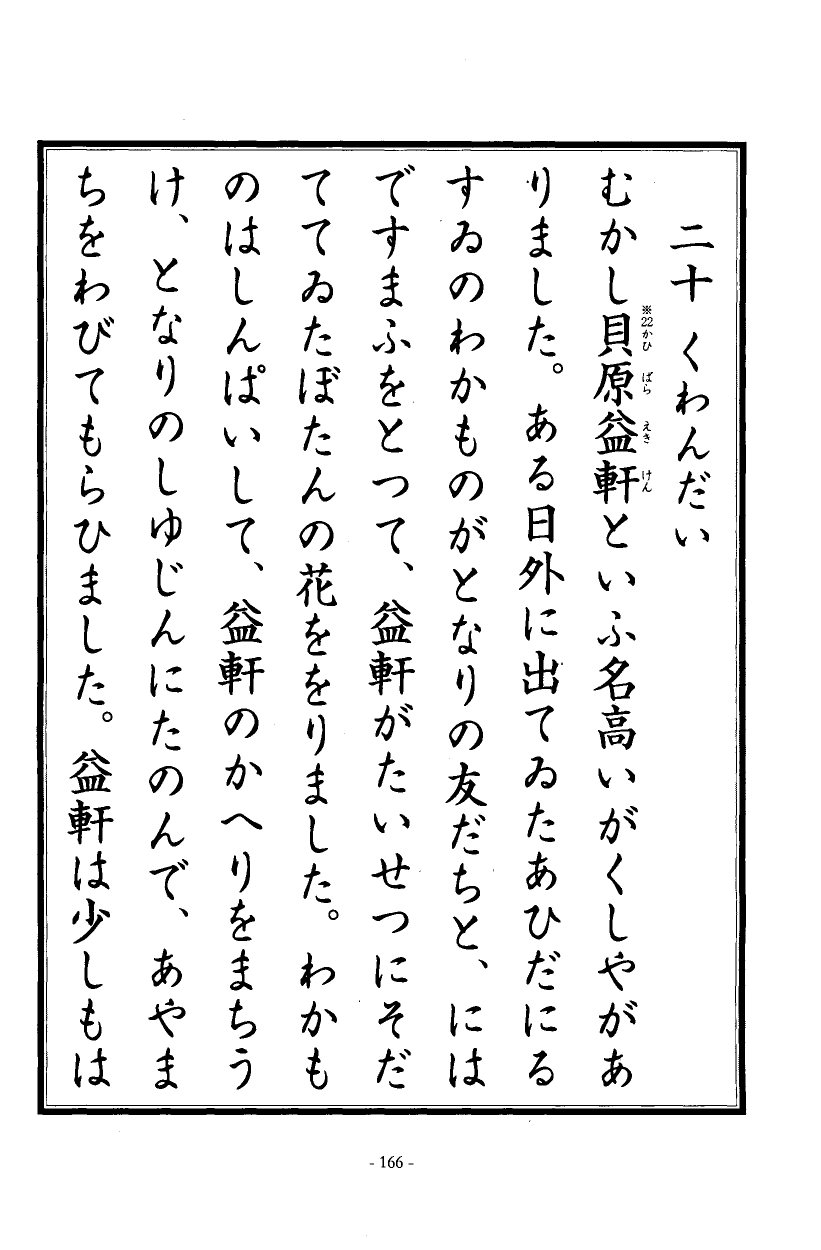 二十 くわんだい
むかし貝原益軒といふ名高いがくしやがあ
※22かひ ばら えき けん
りました。ある日外に出てゐたあひだにる
すゐのわかものがとなりの友だちと、には
ですまふをとつて、益軒がたいせつにそだ
ててゐたぼたんの花ををりました。わかも
のはしんぱいして、益軒のかへりをまちう
け、となりのしゆじんにたのんで、あやま
ちをわびてもらひました。益軒は少しもは
- 166 -